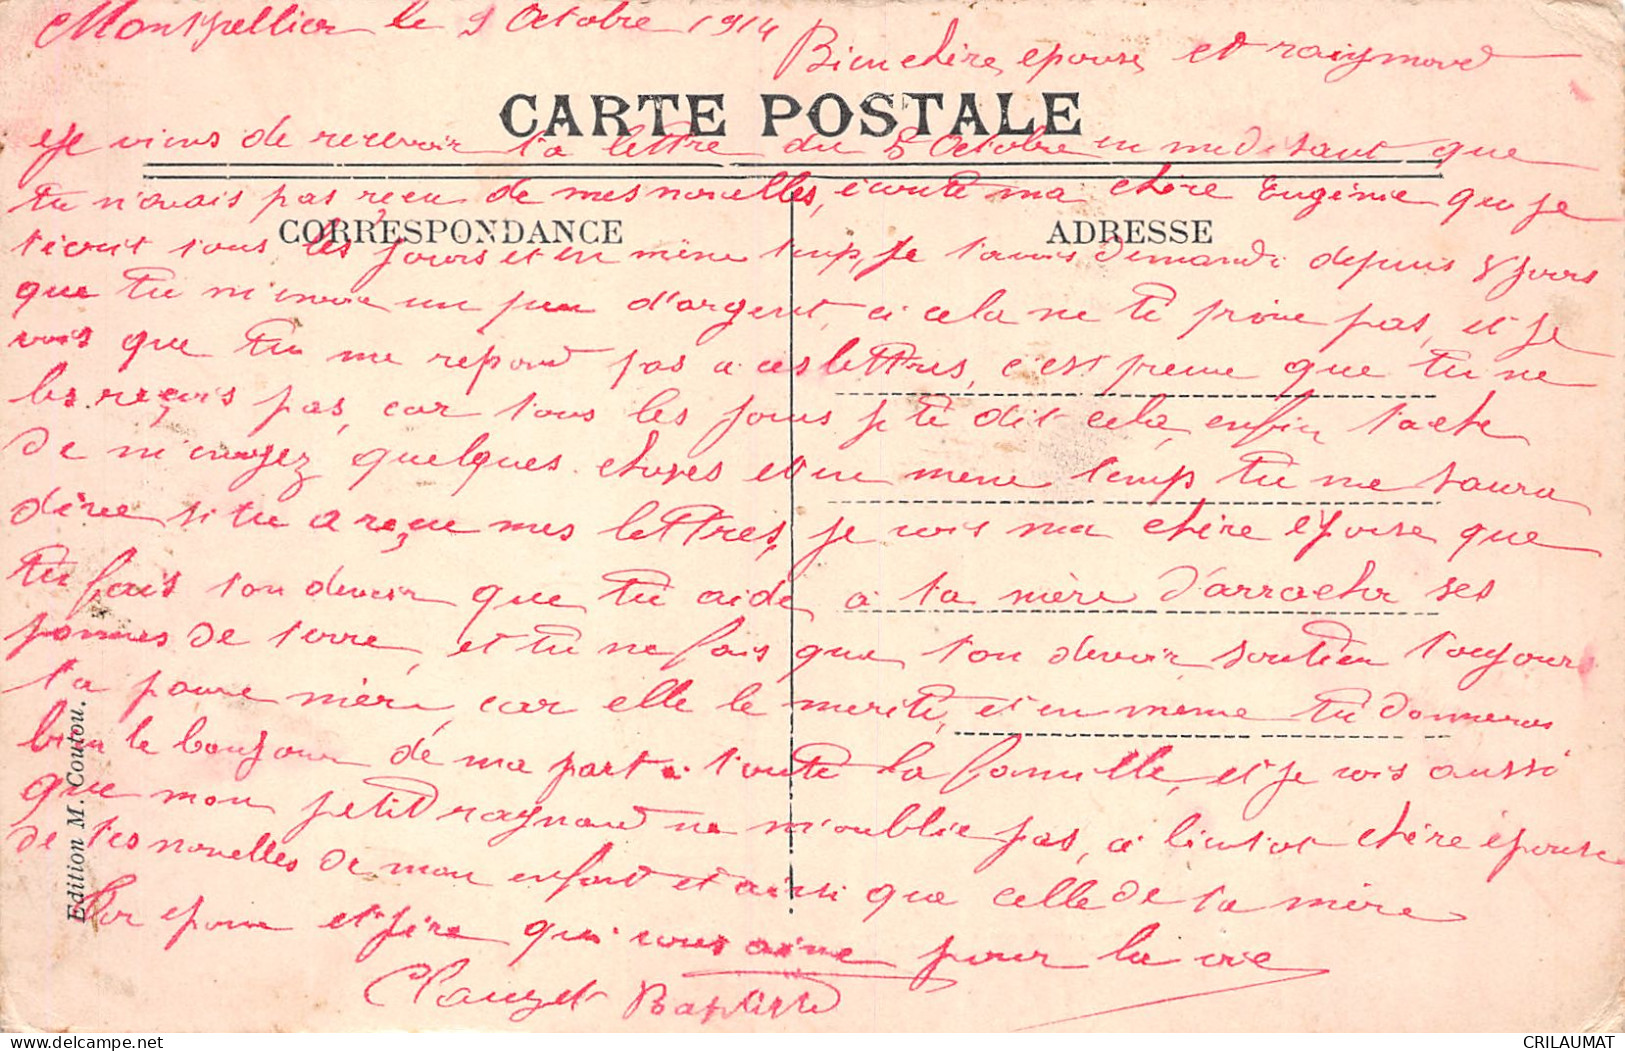 Montpellier le 9 Octobre 1914
Bien chère epouse et raiymond
CARTE POSTALE
Je viens de recevoir ta lettre du 5 Octobre en me disant que
tu n'avais pas reçu de mes nouvelles, écoute ma chère Eugénie que je
CORRESPONDANCE
ADRESSE
t'écrit tous les jours et en mème temp, je t'avais demandé depuis 8 jours
que tu m'envoie un peu d'argent, ci cela ne te prive pas, et je
vois que tu me repond pas a ces lettres, c'est preuve que tu ne
les reçois pas, car tous les jours je te dit cela, enfin tache
de m'envoyez quelques choses et en mème temp tu me saura
dire si tu a reçu mes lettres, je vois ma chère épouse que
tu fais ton devoir que tu aide a ta mère d'arracher ses
pommes de terre, et tu ne fais que ton devoir soutien toujours
ta pauvre mère, car elle le merite, et en mème tu donneras
bien le bonjour de ma part a toute la famille, et je vois aussi
que mon petit raymond ne m'oublie pas, a bientot chère épouse
de tes nouvelles de mon enfant et ainsi que celle de ta mère
Ton epoux et père qui vous aime pour la vie
Clauzet Baptiste
Edition M. Coutou.
CRILAUMAT